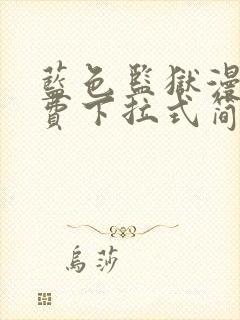 藍色監獄漫
費下拉式简
烏莎